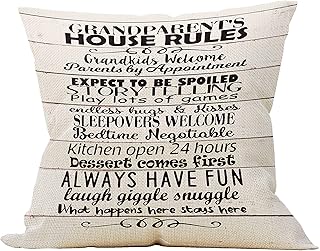 GRANDPARENT'S
HOUSE RULES
Grandkids Welcome
Parents by Appointment
EXPECT TO BE SPOILED
STORYTELLING
Play lots of games
endless hugs & kisses
SLEEPOVERS WELCOME
Bedtime Negotiable
Kitchen open 24 hours
Dessert comes first
ALWAYS HAVE FUN
laugh giggle snuggle
What happens here stays here